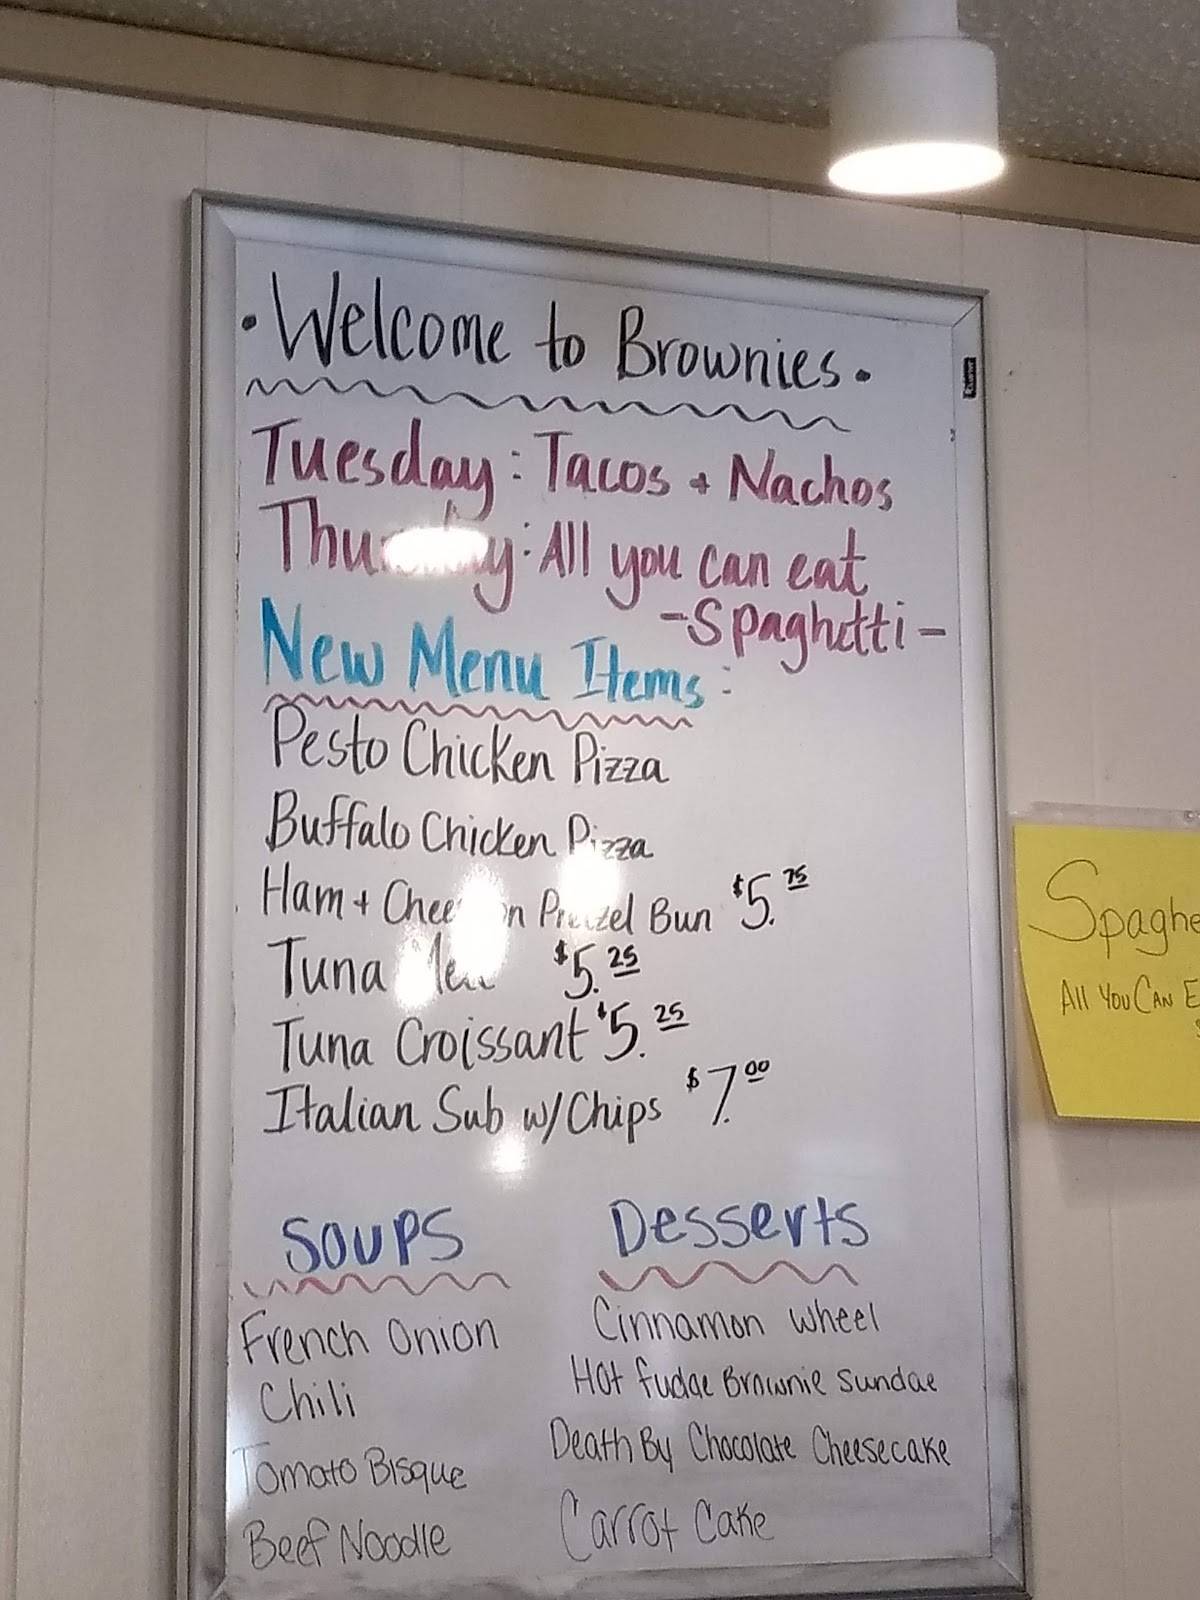 • Welcome to Brownies •
Tuesday: Tacos + Nachos
Thursday: All you can eat
- Spaghetti -
New Menu Items:
Pesto Chicken Pizza
Buffalo Chicken Pizza
Ham + Cheese on Pretzel Bun $5.75
Tuna Melt $5.25
Tuna Croissant $5.25
Italian Sub w/ Chips $7.00
Soups
French Onion
Chili
Tomato Bisque
Beef Noodle
Desserts
Cinnamon Wheel
Hot Fudge Brownie Sundae
Death By Chocolate Cheesecake
Carrot Cake
Spaghe
All You Can E